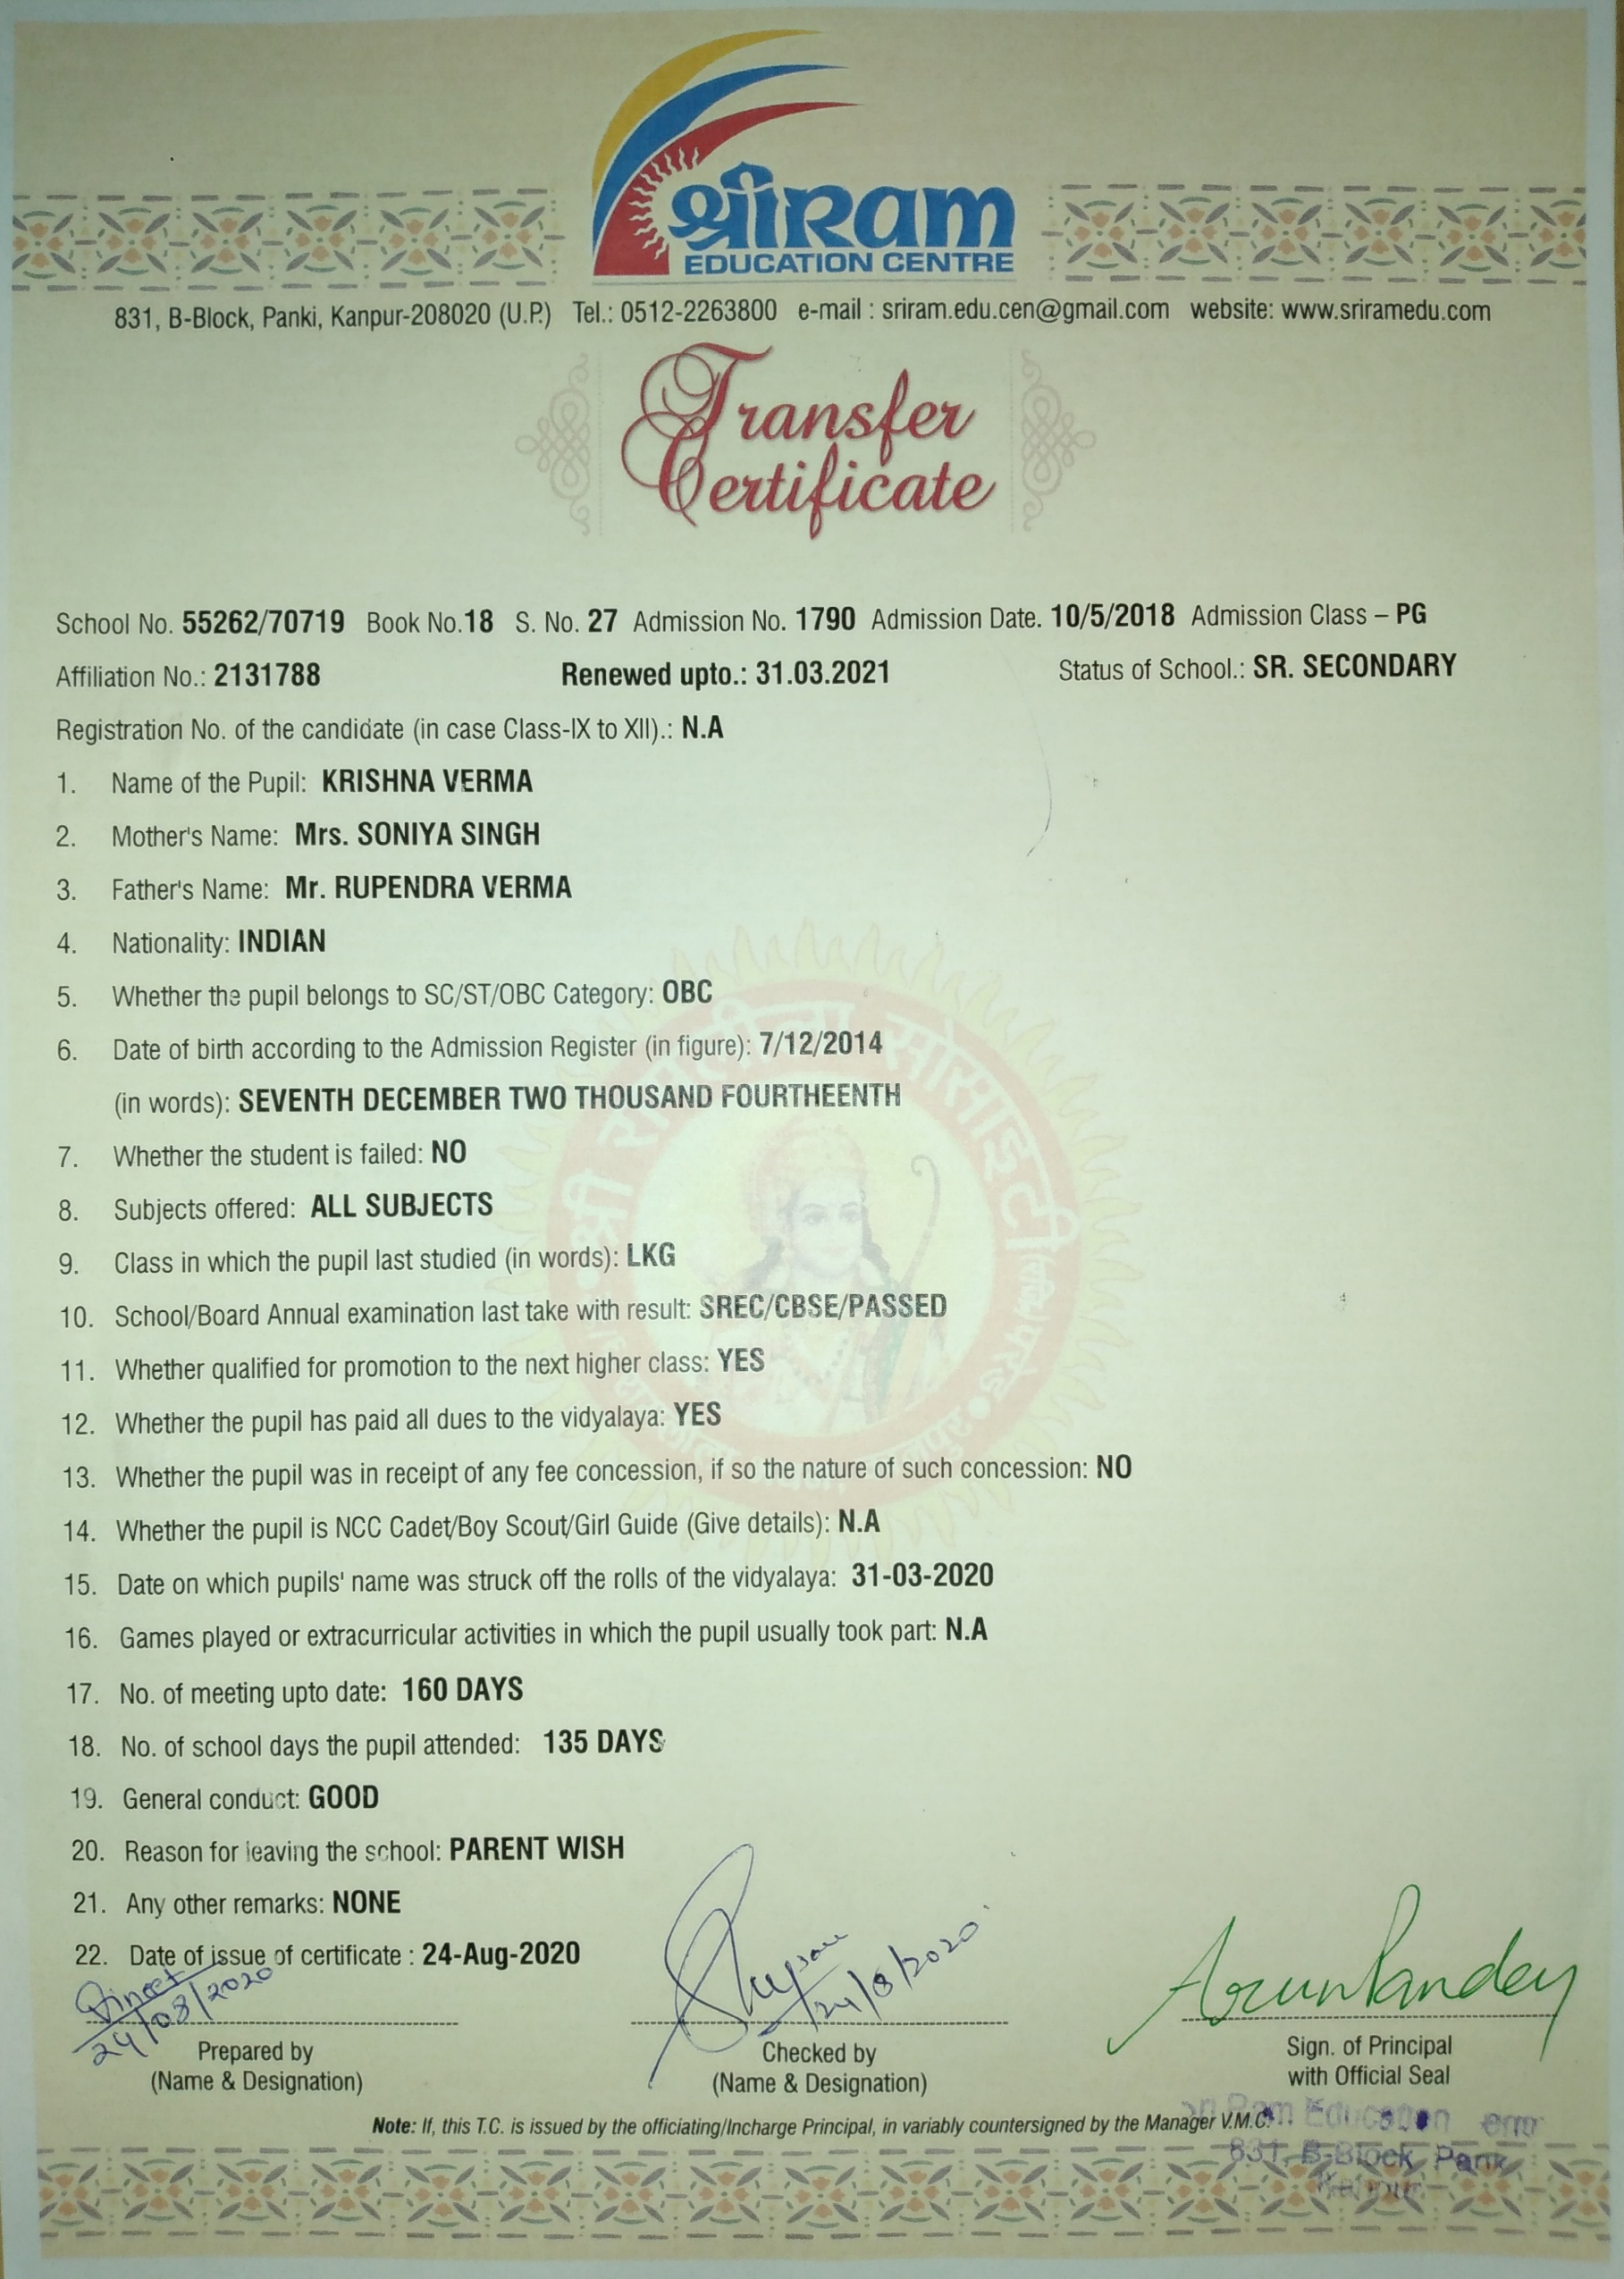 श्रीRam
EDUCATION CENTRE
831, B-Block, Panki, Kanpur-208020 (U.P.) Tel.: 0512-2263800 e-mail : sriram.edu.cen@gmail.com website: www.sriramedu.com
Transfer
Certificate
School No. 55262/70719 Book No.18 S. No. 27 Admission No. 1790 Admission Date. 10/5/2018 Admission Class – PG
Affiliation No.: 2131788 Renewed upto.: 31.03.2021 Status of School.: SR. SECONDARY
Registration No. of the candidate (in case Class-IX to XII).: N.A
1. Name of the Pupil: KRISHNA VERMA
2. Mother's Name: Mrs. SONIYA SINGH
3. Father's Name: Mr. RUPENDRA VERMA
4. Nationality: INDIAN
5. Whether the pupil belongs to SC/ST/OBC Category: OBC
6. Date of birth according to the Admission Register (in figure): 7/12/2014
(in words): SEVENTH DECEMBER TWO THOUSAND FOURTHEENTH
7. Whether the student is failed: NO
8. Subjects offered: ALL SUBJECTS
9. Class in which the pupil last studied (in words): LKG
10. School/Board Annual examination last take with result: SREC/CBSE/PASSED
11. Whether qualified for promotion to the next higher class: YES
12. Whether the pupil has paid all dues to the vidyalaya: YES
13. Whether the pupil was in receipt of any fee concession, if so the nature of such concession: NO
14. Whether the pupil is NCC Cadet/Boy Scout/Girl Guide (Give details): N.A
15. Date on which pupils' name was struck off the rolls of the vidyalaya: 31-03-2020
16. Games played or extracurricular activities in which the pupil usually took part: N.A
17. No. of meeting upto date: 160 DAYS
18. No. of school days the pupil attended: 135 DAYS
19. General conduct: GOOD
20. Reason for leaving the school: PARENT WISH
21. Any other remarks: NONE
22. Date of issue of certificate : 24-Aug-2020
24/08/2020 24/8/2020 Arun Pandey
Prepared by Checked by Sign. of Principal
(Name & Designation) (Name & Designation) with Official Seal
Note: If, this T.C. is issued by the officiating/Incharge Principal, in variably countersigned by the Manager V.M.C.
Ram Education
831, B-Block, Pank